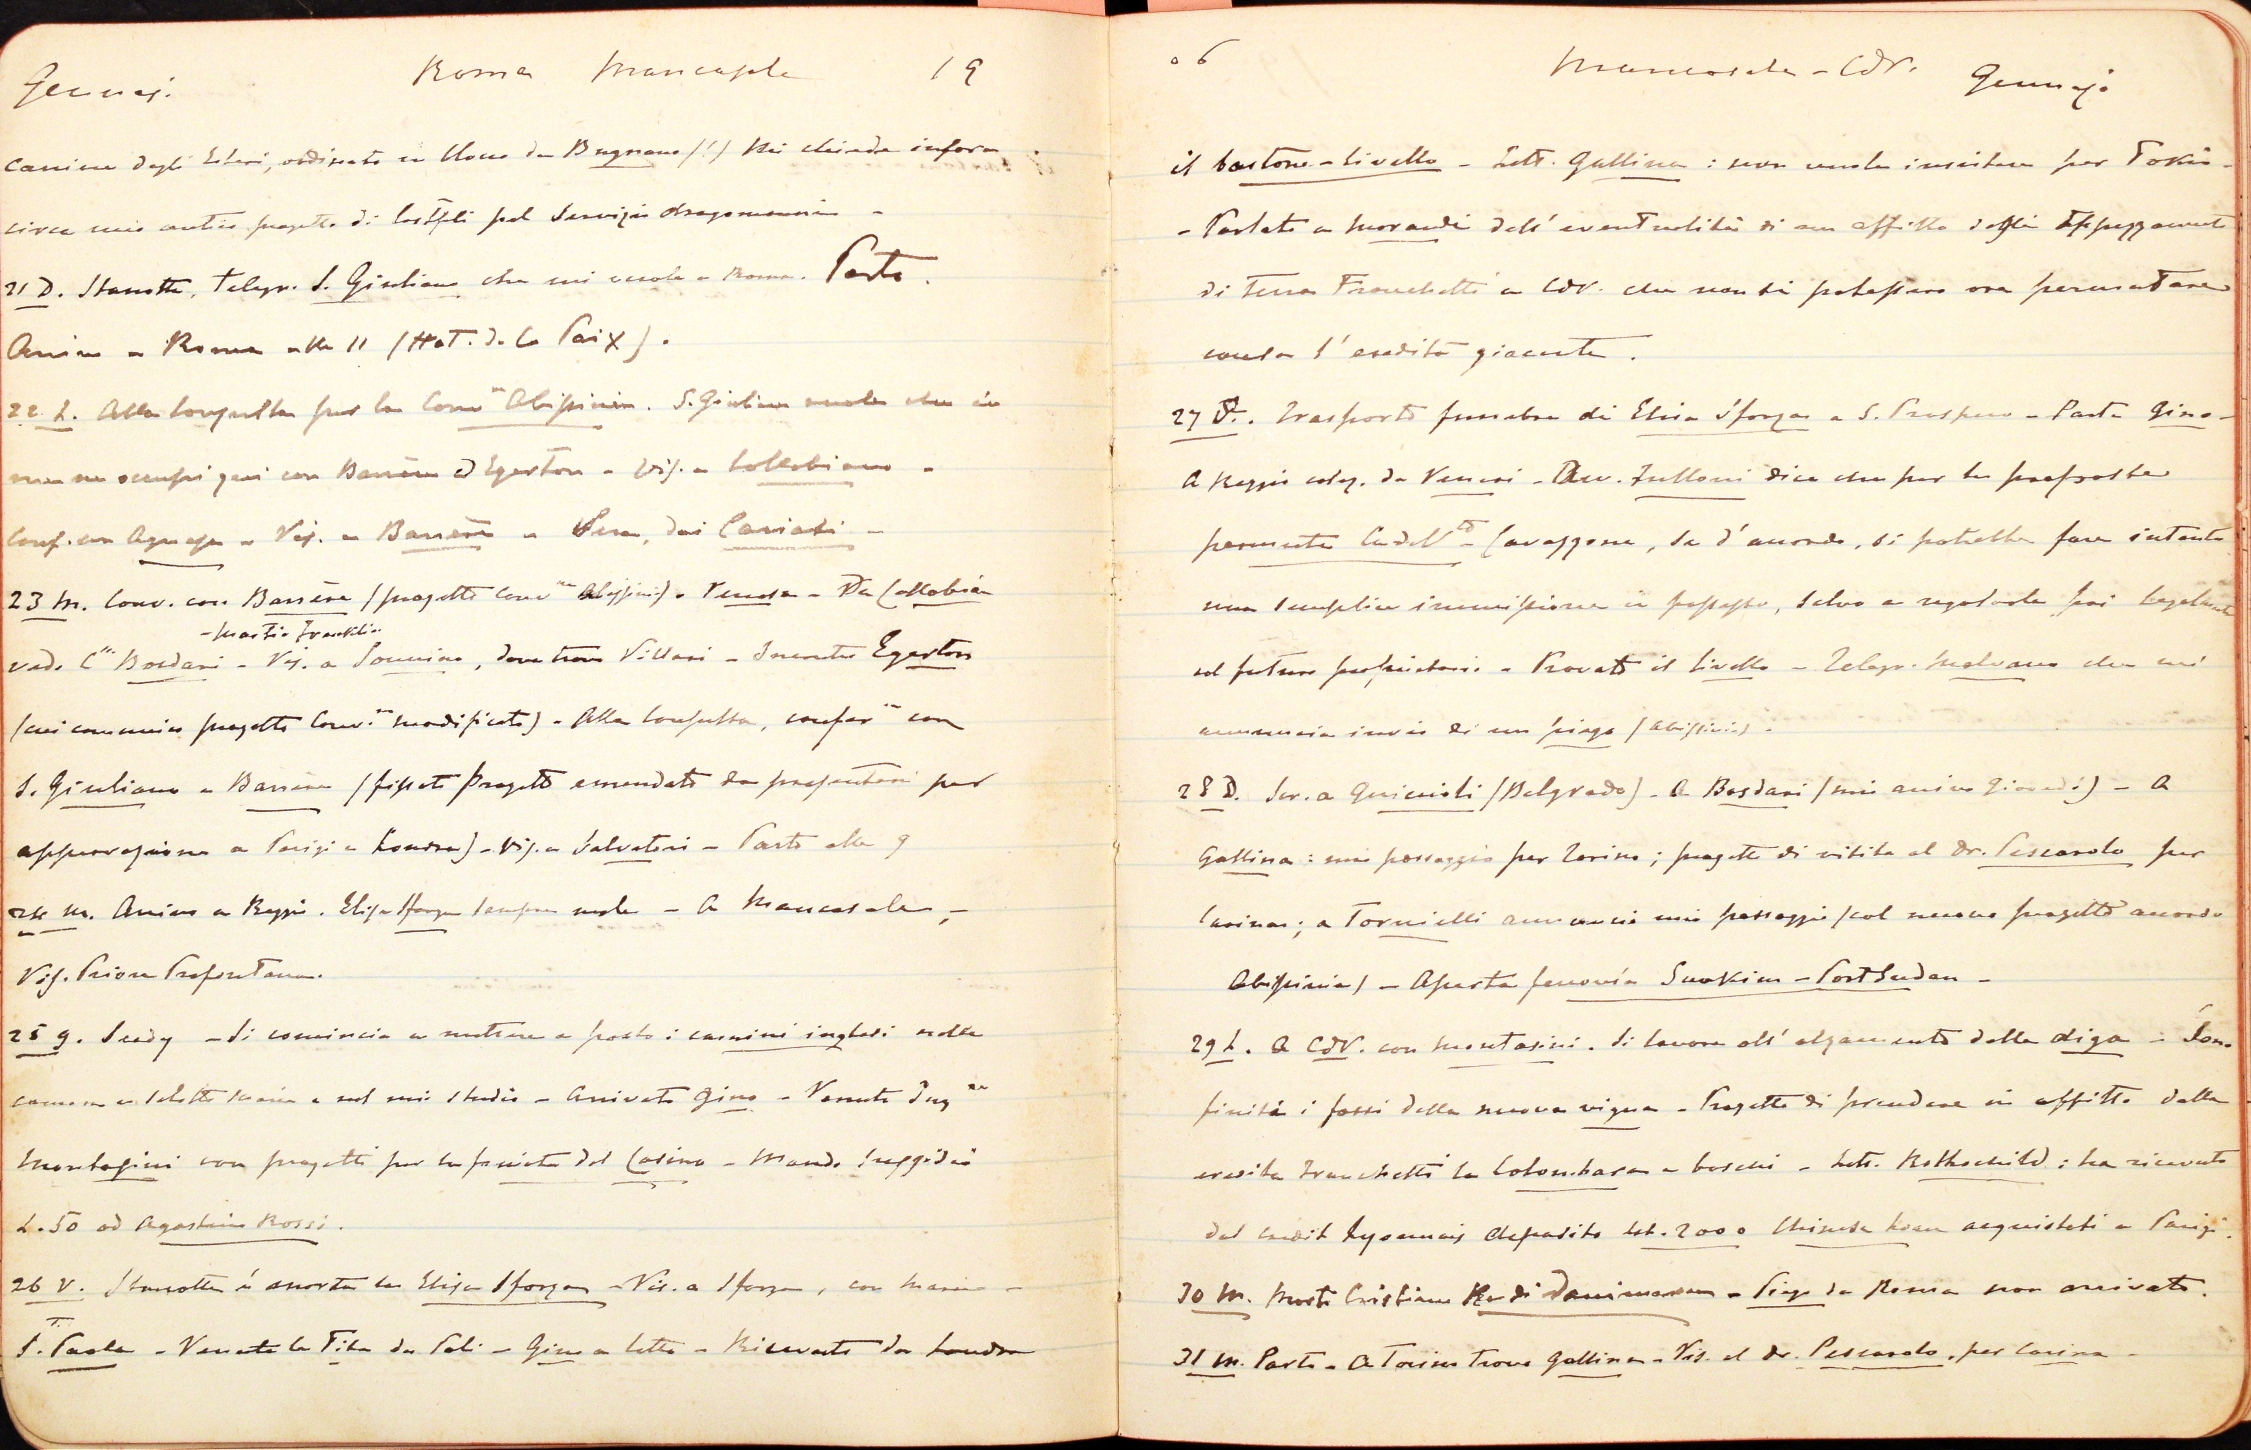 Gennaj. Roma Mancasale 19
carriera degli Esteri, ordinato in blocco da Bugnano (!) Mi chiede infor
circa mio antico progetto di Cos pel Servizio dragomanni -
21 D. Stanotte, Telegr. S. Giuliano che mi vuole a Roma. Parto.
Arrivo a Roma alle 11 (Hot. de la Paix).
22 L. Alla Consulta per la Conv.ne Abissinia. S. Giuliano vuole che io
me ne occupi qui con Barrère ed Egerton - Vis. a Collobiano -
Conf. con Agnesa - Vis. a Barrère - Sera, dai Cariati -
23 M. Conv. con Barrère (progetto Conv.ne Abissinia) - Venosa - Da Collobian
- Martin Francklin
vedo C.te Bosdari - Vis. a Sonnino, dove trovo Villari - Incontro Egerton
(cui comunico progetto Conv.ne modificato) - Alla Consulta, confer.ze con
S. Giuliano e Barrère (fissato progetto emendato da presentarsi per
approvazione a Parigi e Londra) - Vis. a Salvatori - Parto alle 9
24 M. Arrivo a Reggio. Elisa Sforza sempre male - A Mancasale -
Vis. Priore Prefontana.
25 G. Scandy - Si comincia a mettere a posto i camini inglesi nella
camera e salotto Maria e nel mio studio - Arrivato Gino - Venuto Ing.re
Montasini con progetti per la facciata del Casino - Mando sussidio
L. 50 ad Agostino Rossi.
26 V. Stanotte è morta la Elisa Sforza - Vis. a Sforza, con Maria -
S. Paola - Venuta la Tita da Poli - Gino a letto - Ricevuto da Londra
06 Mancasale - CdV. Gennajo
il bastone-livello - Lett. Gallina: non vuole insistere per Tokio -
- Parlato a Morandi dell'eventualità di un affitto degli Appezzamenti
di terra Franchetti a CdV. che non si potessero ora permutare
causa l'eredità giacente.
27 S. Trasporto funebre di Elisa Sforza a S. Prospero - Parte Gino -
A Reggio colaz. da Veneri - Avv. Fulloni dice che per la proposta
permuta CadelV.to - Cavazzone, se d'accordo, si potrebbe fare intanto
una semplice immissione in possesso, salvo a regolarla poi legalmente
col futuro proprietario - Provato il livello - Telegr. Malvano che mi
annuncia invio di un piego (Abissinia).
28 D. Scr. a Guiccioli (Belgrado) - A Bosdari (mio arrivo Giovedì) - A
Gallina: mio passaggio per Torino; progetto di visita al Dr. Pescarolo per
Carina; a Tornielli annuncio mio passaggio (col nuovo progetto accordo
Abissinia) - Aperta ferrovia Suakim - Port Sudan -
29 L. A CdV. con Montasini. Si lavora all'alzamento della diga - Sono
finiti i fossi della nuova vigna - Progetto di prendere in affitto dalla
eredità Franchetti la Colombara e boschi - Lett. Rothschild: ha ricevuto
dal Crédit Lyonnais deposito Lst. 2000 Chinese loan acquistati a Parigi.
30 M. Morto Cristiano Re di Danimarca - Piego da Roma non arrivato.
31 M. Parto - A Torino trovo Gallina - Vis. al Dr. Pescarolo, per Carina -